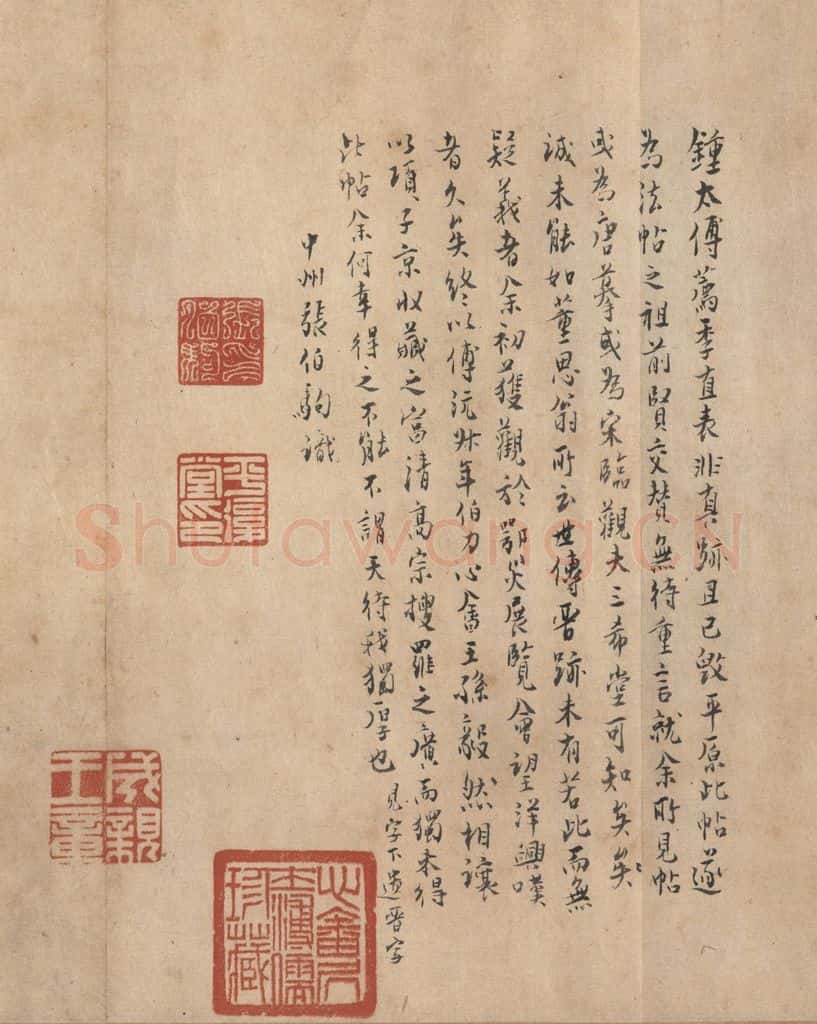 鍾太傅薦季直表非真跡且已毀平原此帖遂
為法帖之祖前賢交贊無待重言就余所見帖
或為唐摹或為宋臨觀夫三希堂可知矣矣
誠未能如董思翁所云世傳晉跡未有若此而無
疑義者余初獲觀於鄂災展覽會望洋興嘆
者久矣終以傅沅叔年伯力心畬王孫毅然相讓
以項子京收藏之富清高宗搜羅之廣而獨未得
此帖余何幸得之不能不謂天待我獨厚也
見字下遺晉字
中州張伯駒識
平復堂印
成親王章
珍藏
Shufawang.CN